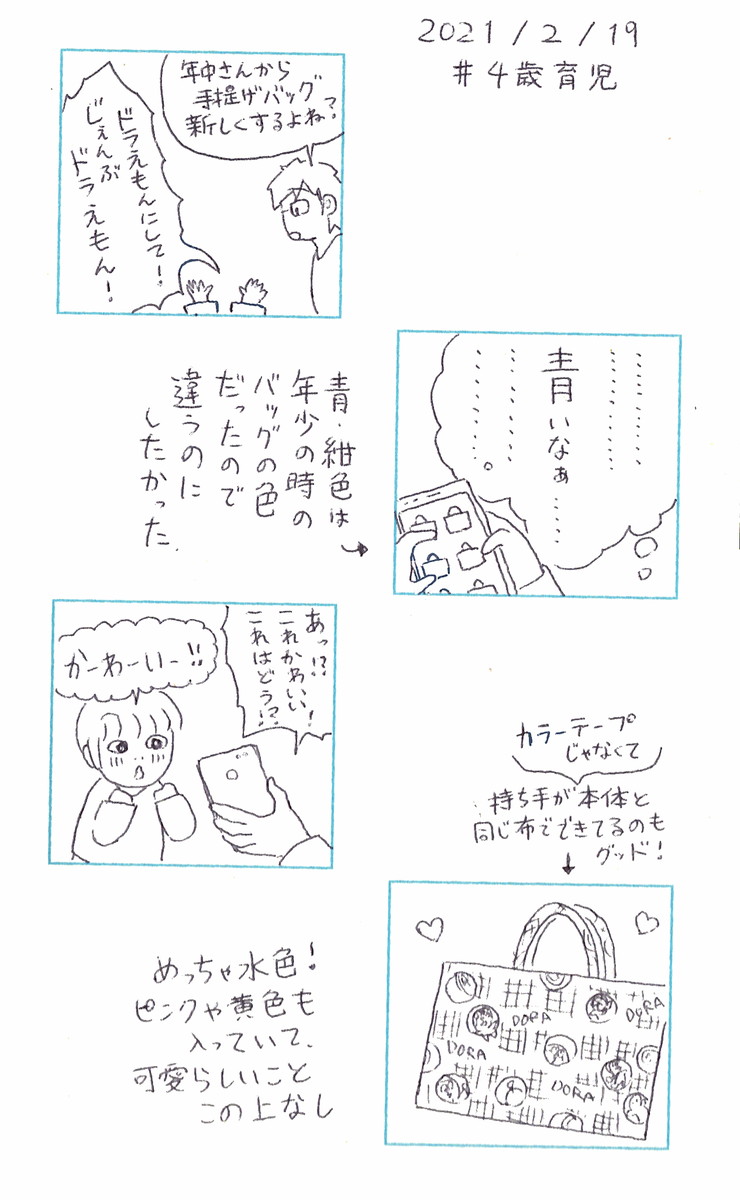 2021/2/19
#4歳育児
年中さんから
手提げバッグ
新しくするよね?
ドラえもんにして!
じぇんぶ
ドラえもん!
………
………
青いなぁ……
………
………
青・紺色は
年少の時の
バッグの色
だったので
違うのに
したかった
あっ!?
これかわいい!
これはどう!?
かーわーいー!!
カラーテープ
じゃなくて
持ち手が本体と
同じ布でできてるのも
グッド!
DORA
DORA
DORA
DORA
めっちゃ水色!
ピンクや黄色も
入っていて、
可愛らしいこと
この上なし